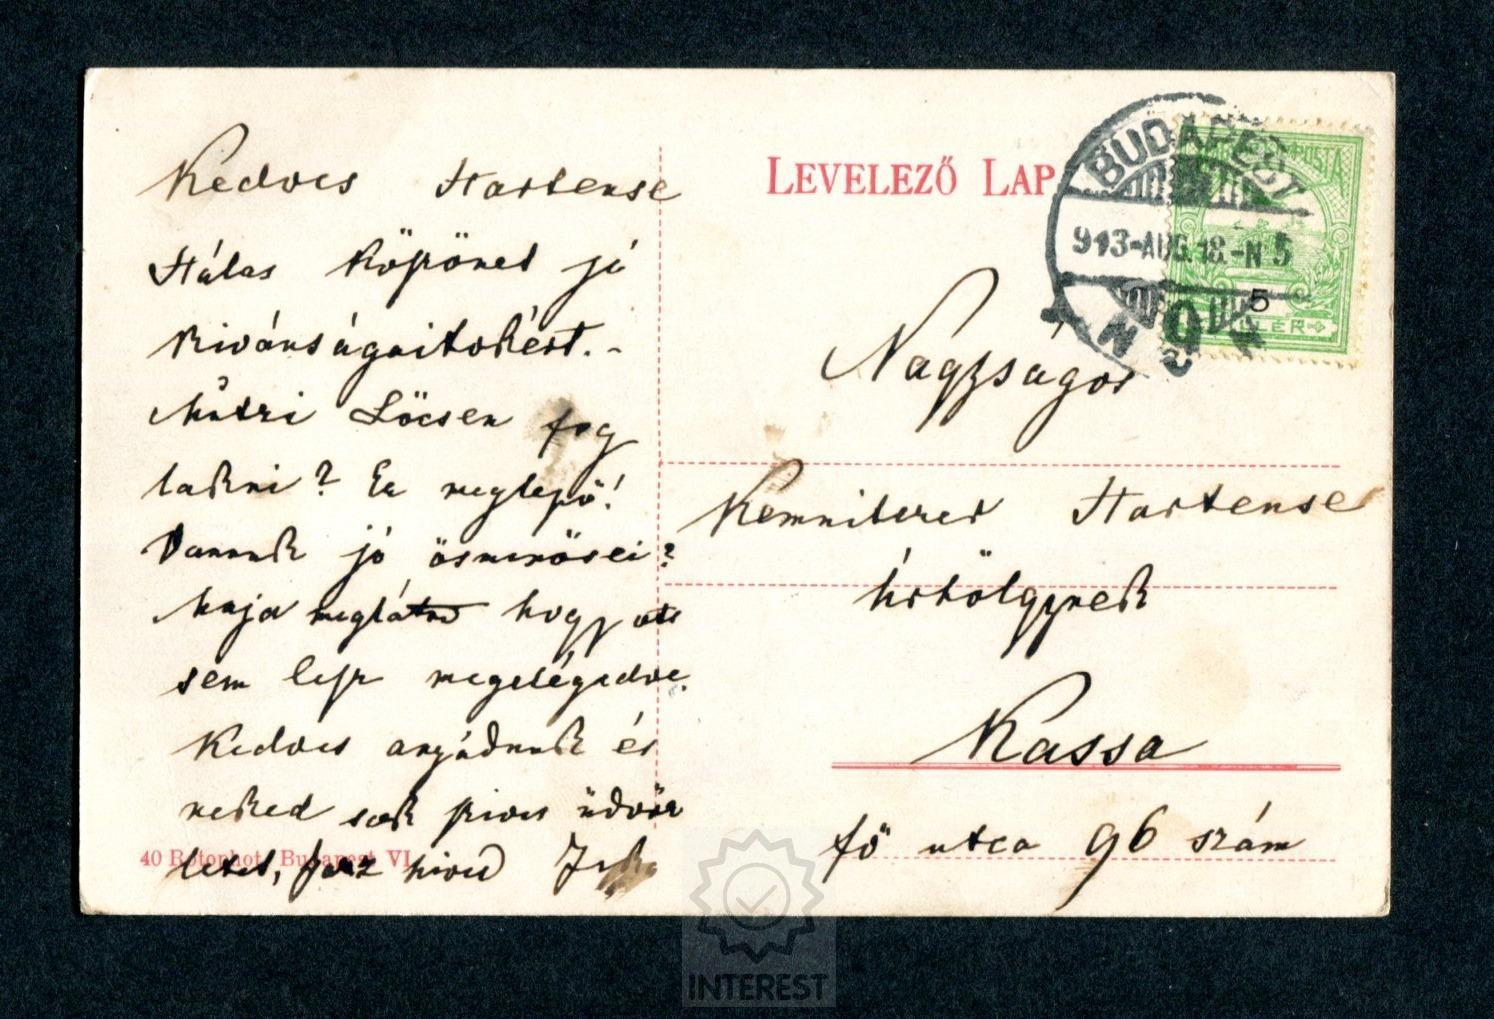 Kedves Hortense
Hálás köszönet jó
kivánságaitokért.-
Lőcsén fog
lakni? Ez meglepő!
Vannak jó ösmerősei?
meglátod hogy ott
sem lesz megelégedve.
Kedves anyádnak és
neked sok szives üdvöz
letet, hived
40 Rotophot, Budapest VI.
LEVELEZŐ LAP
BUDAPEST
913-AUG.18.-N 5
5
Nagyságos
Kemnitzer Hortense
úrhölgynek
Kassa
fő utca 96 szám
INTEREST